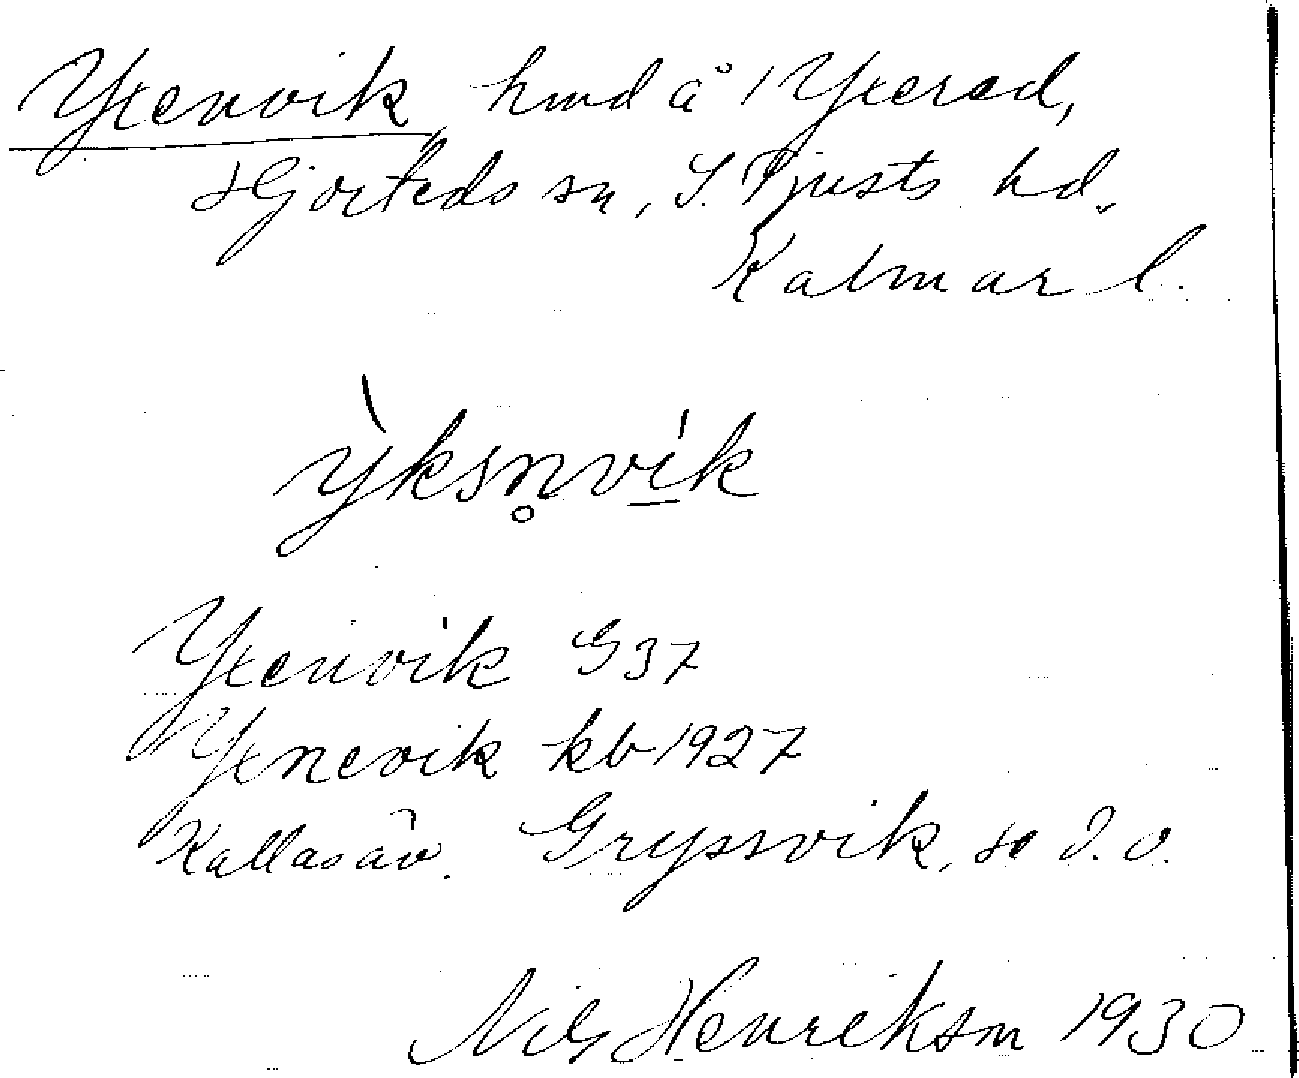 Yxenvik hmd å 1 Yxered,
Hjorteds sn, S. Tjusts hd,
Kalmar l.
ỳksn̥vík
Yxenvik G37
Yxnevik kb 1927
Kallas äv. Grypsvik, se d. o.
Nils Henriksson 1930